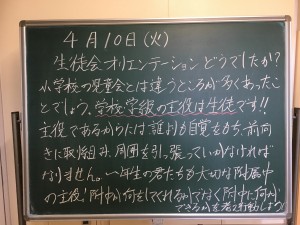 4月10日(火)
生徒会オリエンテーションどうでしたか?
小学校の児童会とは違うところが多くあったこ
とでしょう。学校・学級の主役は生徒です!!
主役であるからには誰もが自覚をもち、前向
きに取り組み、周囲を引っ張っていかなければ
なりません。一年生の君たちも大切な附属中
の主役!「附中が何をしてくれるか」でなく「附中に何が
できるか」を考え行動しよう